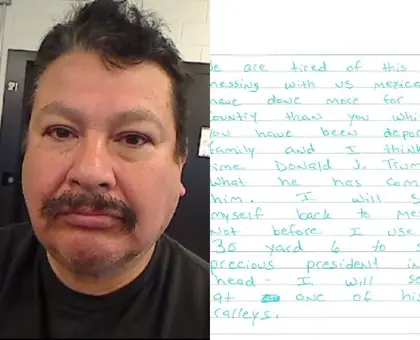 SPI
e are tired of this
messing with us mexica
have done more for
country than you whi
you have been depo
family and I think
time Donald J. Trum
what he has com
him. I will s
myself back to Me
Not before I use
30 yard 6 to
precious president in
head - I will se
at one of his
ralleys.